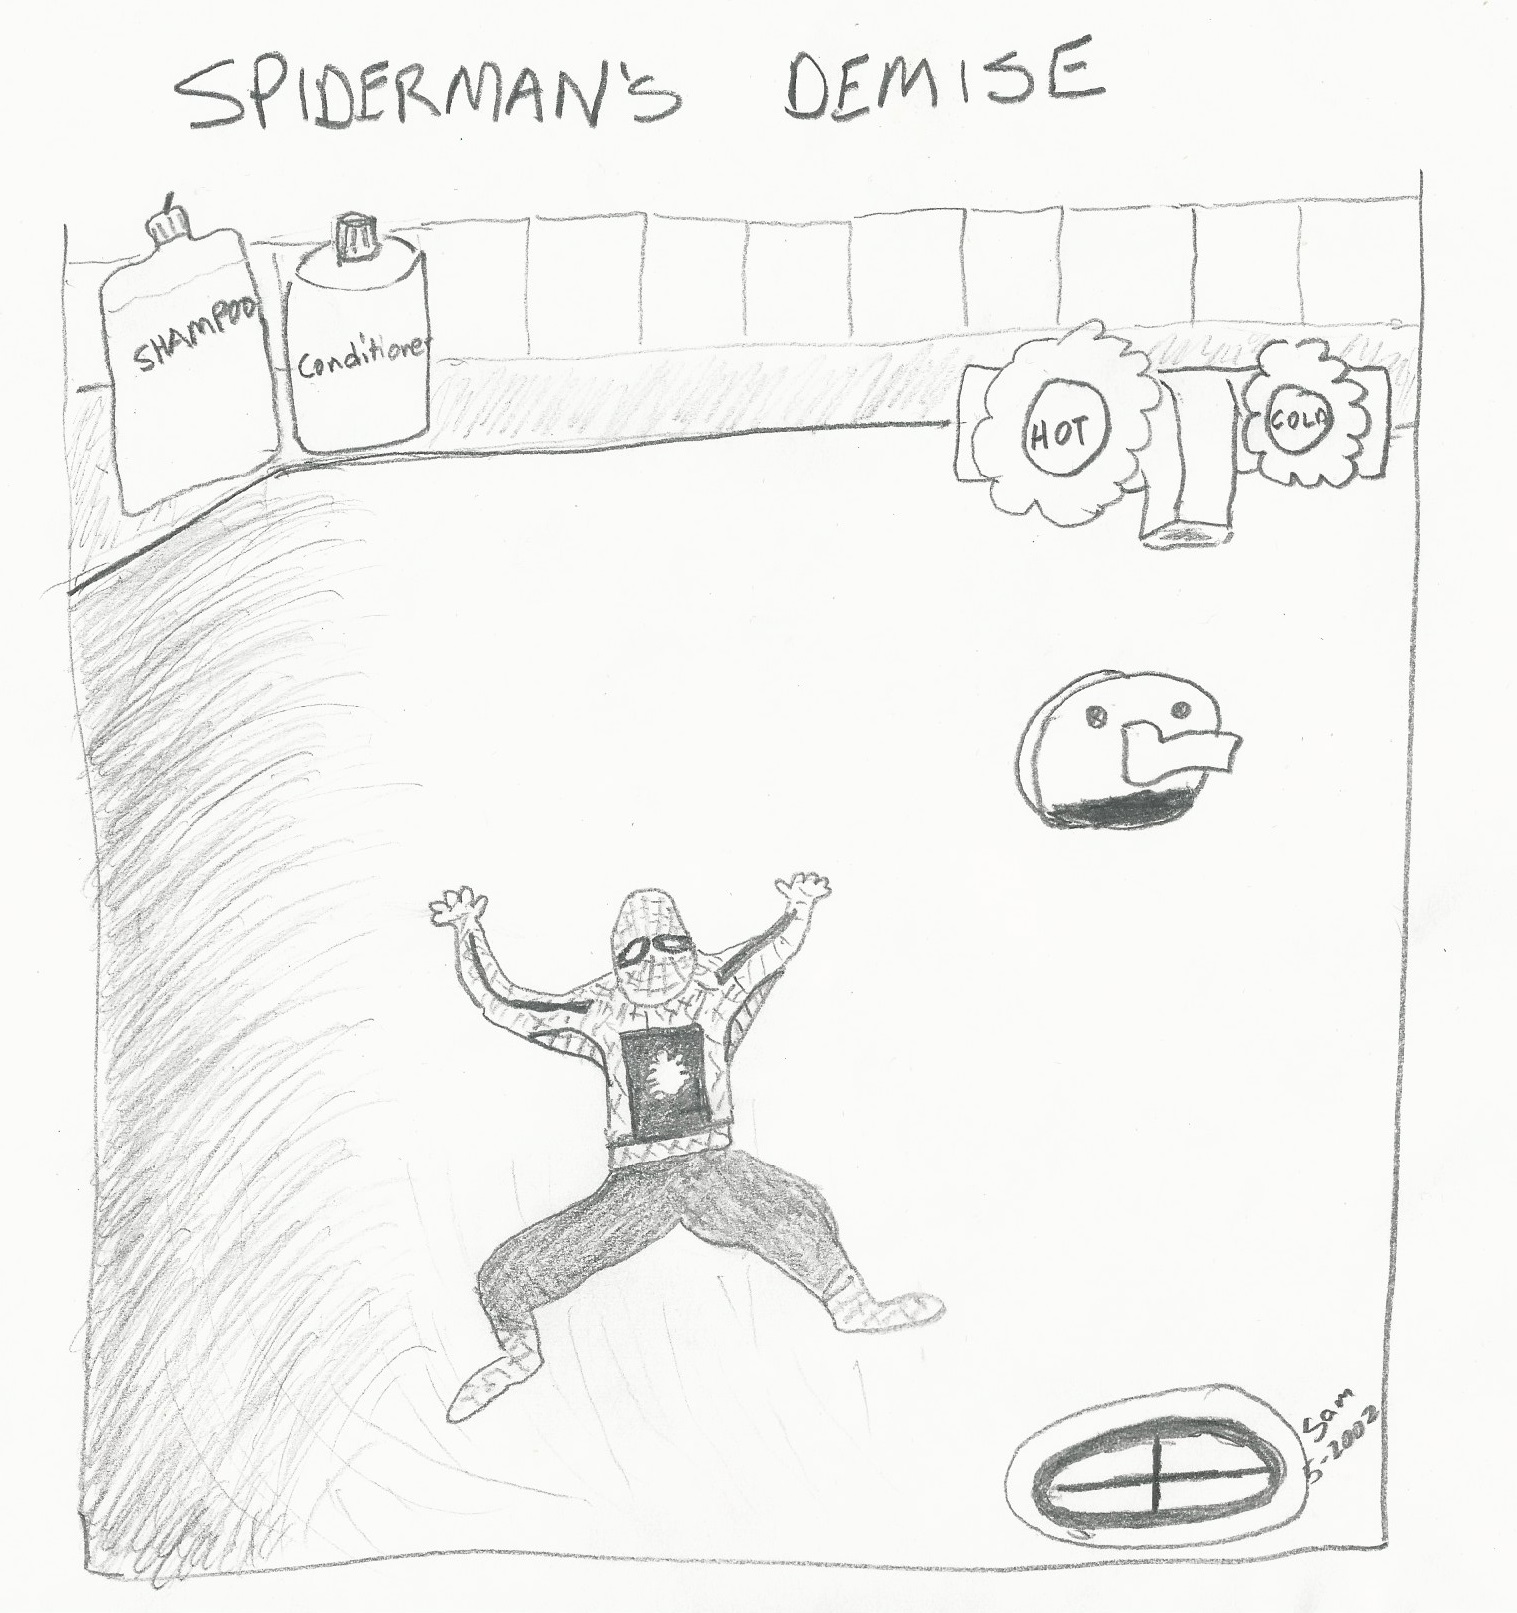 SPIDERMAN'S DEMISE
SHAMPOO
Conditioner
HOT
COLD
Sam
5-2002